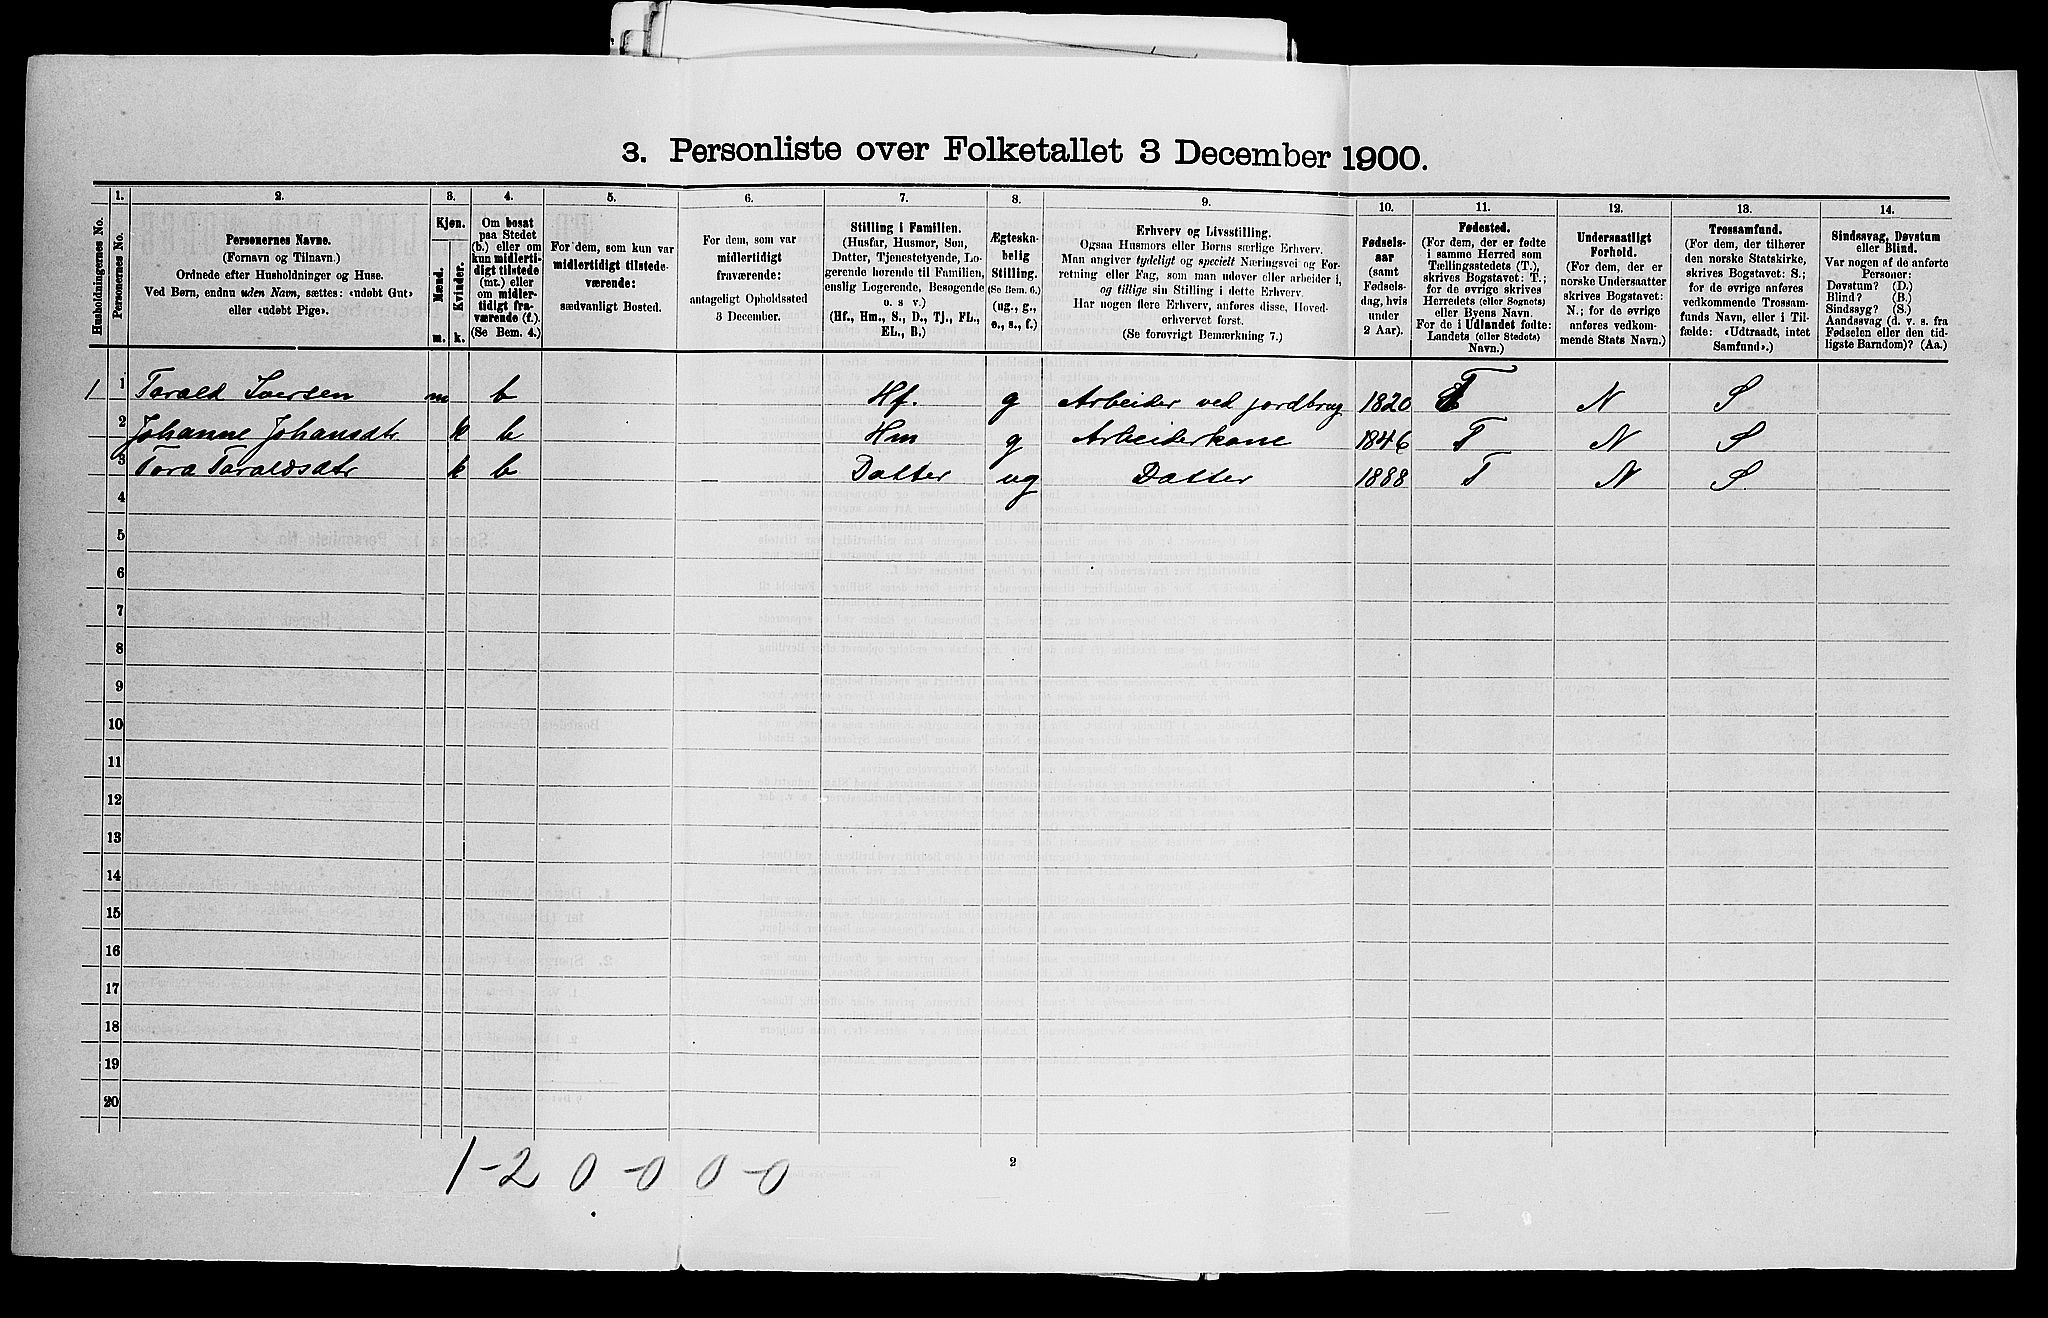 3. Personliste over Folketallet 3 December 1900.
Husholdningernes No.
1.
Personernes No.
2.
Personernes Navne.
(Fornavn og Tilnavn.)
Ordnede efter Husholdninger og Huse.
Ved Børn, endnu uden Navn, sættes: «udøbt Gut»
eller «udøbt Pige».
3.
Kjøn.
Mænd.
Kvinder.
m.
k.
4.
Om bosat
paa Stedet
(b.) eller om
kun midlerti-
digt tilstede
(mt.) eller
om midler-
tidigt fra-
værende (f.).
(Se Bem. 4.)
5.
For dem, som kun var
midlertidigt tilstede-
værende:
sædvanligt Bosted.
6.
For dem, som var
midlertidigt
fraværende:
antageligt Opholdssted
3 December.
7.
Stilling i Familien.
(Husfar, Husmor, Søn,
Datter, Tjenestetyende, Lo-
gerende hørende til Familien,
enslig Logerende, Besøgende
o. s v.)
(Hf., Hm., S., D., Tj., FL.,
EL., B.)
8.
Ægteska-
belig
Stilling.
(Se Bem. 6.)
(ug., g.,
e., s., f.)
9.
Erhverv og Livsstilling.
Ogsaa Husmors eller Børns særlige Erhverv.
Man angiver tydeligt og specielt Næringsvei og For-
retning eller Fag, som man udover eller arbeider i,
og tillige sin Stilling i dette Erhverv.
Har nogen flere Erhverv, anføres disse, Hoved-
erhvervet først.
(Se forøvrigt Bemærkning 7.)
10.
Fødsels-
aar
(samt
Fødsels-
dag, hvis
under
2 Aar).
11.
Fødested.
(For dem, der er fødte
i samme Herred som
Tællingsstedets (T.),
skrives Bogstavet: T.;
for de øvrige skrives
Herredets (eller Sognets)
eller Byens Navn.
For de i Udlandet fødte:
Landets (eller Stedets)
Navn.)
12.
Undersaatligt
Forhold.
(For dem, der er
norske Undersaatter
skrives Bogstavet:
N.; for de øvrige
anføres vedkom-
mende Stats Navn.)
13.
Trossamfund.
(For dem, der tilhører
den norske Statskirke,
skrives Bogstavet: S.;
for de øvrige anføres
vedkommende Trossam-
funds Navn, eller i Til-
fælde: «Udtraadt, intet
Samfund».)
14.
Sindssvag, Døvstum
eller Blind.
Var nogen af de anførte
Personer:
Døvstum? (D.)
Blind? (B.)
Sindssyg? (S.)
Aandssvag (d. v. s. fra
Fødselen eller den tid-
ligste Barndom)? (Aa.)
1 1 Tarald Iversen m b Hf. g Arbeider ved jordbrug 1820 T N S
2 Johanne Johansdtr k b Hm g Arbeiderkone 1846 T N S
3 Tora Taraldsdtr k b Datter ug Datter 1888 T N S
4
5
6
7
8
9
10
11
12
13
14
15
16
17
18
19
20
1-2 0-0 0-0
2